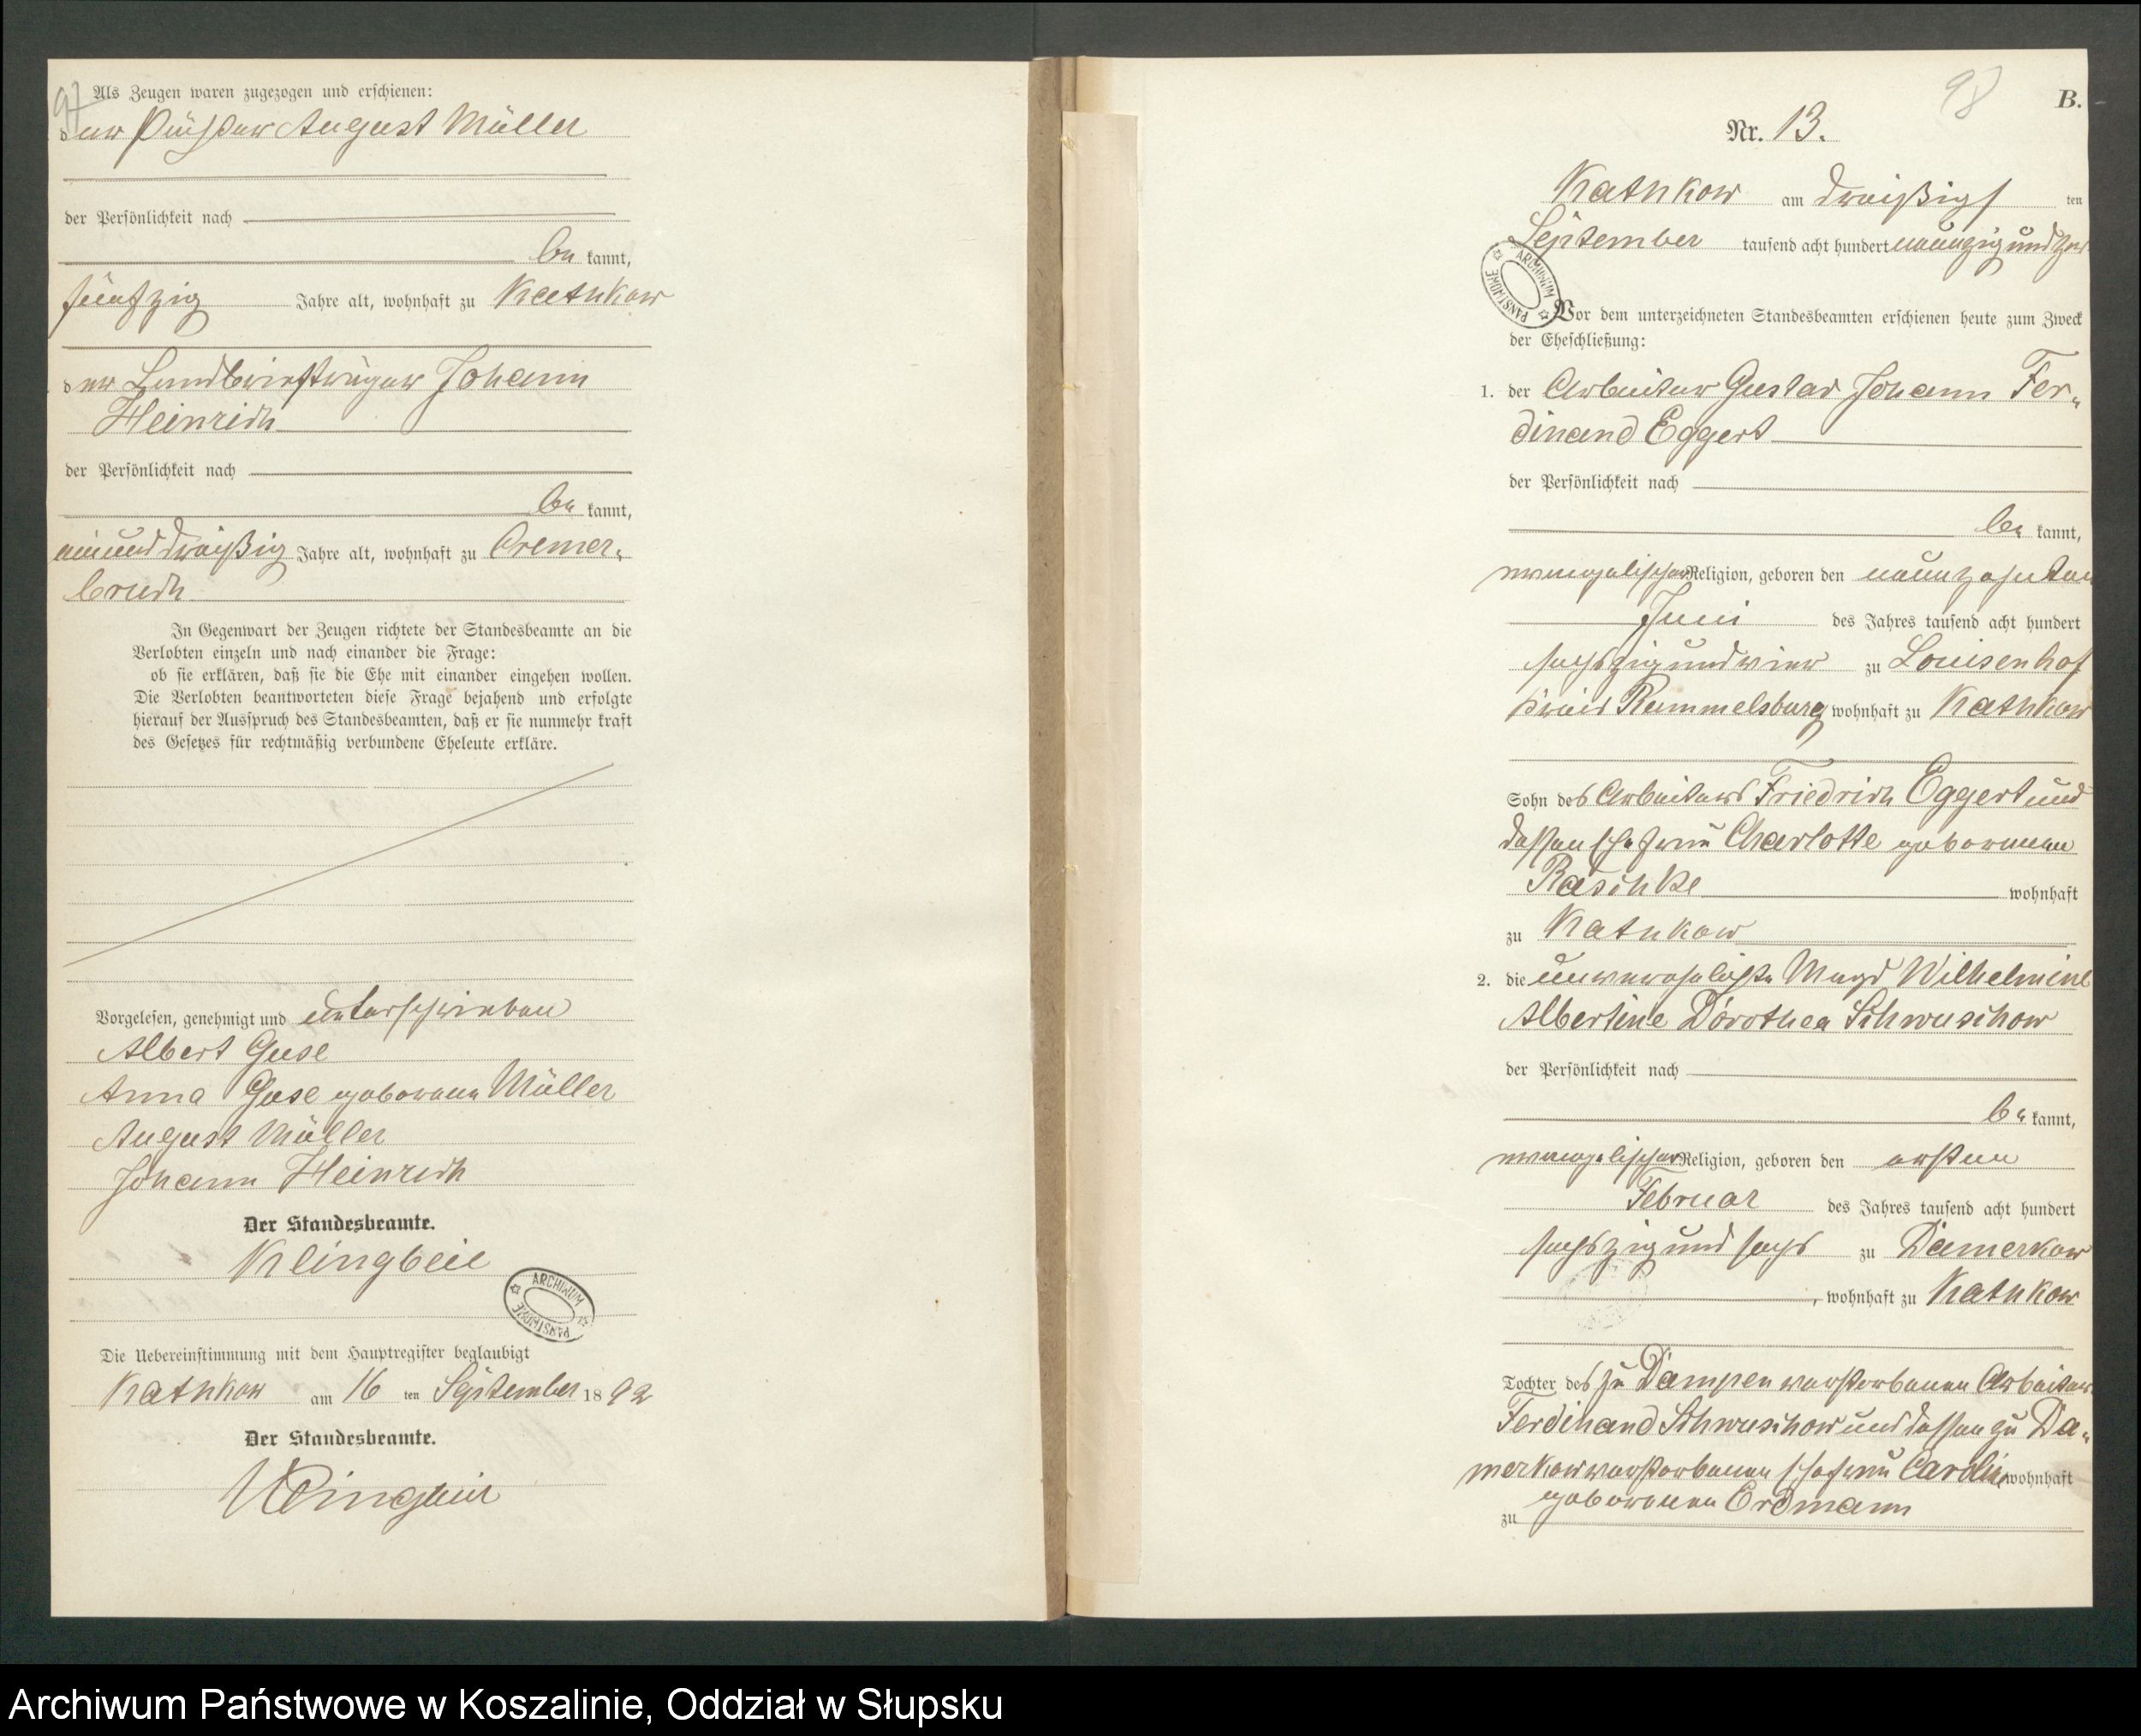 97
Als Zeugen waren zugezogen und erschienen:
der August Müller
der Persönlichkeit nach
be kannt,
fünfzig Jahre alt, wohnhaft zu Kathkow
der Landbriefträger Johann
Heinrich
der Persönlichkeit nach
be kannt,
einunddreißig Jahre alt, wohnhaft zu Cremer-
bruch
In Gegenwart der Zeugen richtete der Standesbeamte an die
Verlobten einzeln und nach einander die Frage:
ob sie erklären, daß sie die Ehe mit einander eingehen wollen.
Die Verlobten beantworteten diese Frage bejahend und erfolgte
hierauf der Ausspruch des Standesbeamten, daß er sie nunmehr kraft
des Gesetzes für rechtmäßig verbundene Eheleute erkläre.
Vorgelesen, genehmigt und unterschrieben
Albert Guse
Anna Guse geborene Müller
August Müller
Johann Heinrich
Der Standesbeamte.
Klingbeil
ARCHIWUM PAŃSTWOWE
Die Uebereinstimmung mit dem Hauptregister beglaubigt
Kathkow am 16 ten September 1892
Der Standesbeamte.
Klingbeil
98
B.
Nr. 13.
Kathkow am dreißigs ten
September tausend acht hundert neunzig und zwei
ARCHIWUM PAŃSTWOWE
Vor dem unterzeichneten Standesbeamten erschienen heute zum Zweck
der Eheschließung:
1. der Arbeiter Gustav Johann Fer-
dinand Eggert
der Persönlichkeit nach
be kannt,
evangelischer Religion, geboren den neunzehnten
Juni des Jahres tausend acht hundert
sechszig und vier zu Louisenhof
Kreis Rummelsburg wohnhaft zu Kathkow
Sohn des Arbeiters Friedrich Eggert und
dessen Ehefrau Charlotte geborenen
Raschke wohnhaft
zu Kathkow
2. die unverehelichte Magd Wilhelmine
Albertine Dorothea Schwuschow
der Persönlichkeit nach
be kannt,
evangelischer Religion, geboren den ersten
Februar des Jahres tausend acht hundert
sechszig und sechs zu Damerkow
, wohnhaft zu Kathkow
Tochter des zu Dampen verstorbenen Arbeiters
Ferdinand Schwuschow und dessen zu Da-
merkow verstorbenen Ehefrau Caroline wohnhaft
geborenen Erdmann
zu
Archiwum Państwowe w Koszalinie, Oddział w Słupsku